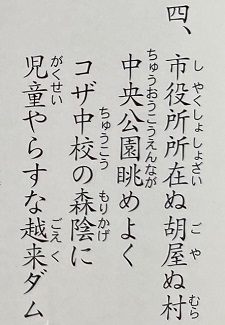 四、市役所所在ぬ胡屋ぬ村
中央公園眺めよく
コザ中校の森陰に
児童やらすな越来ダム